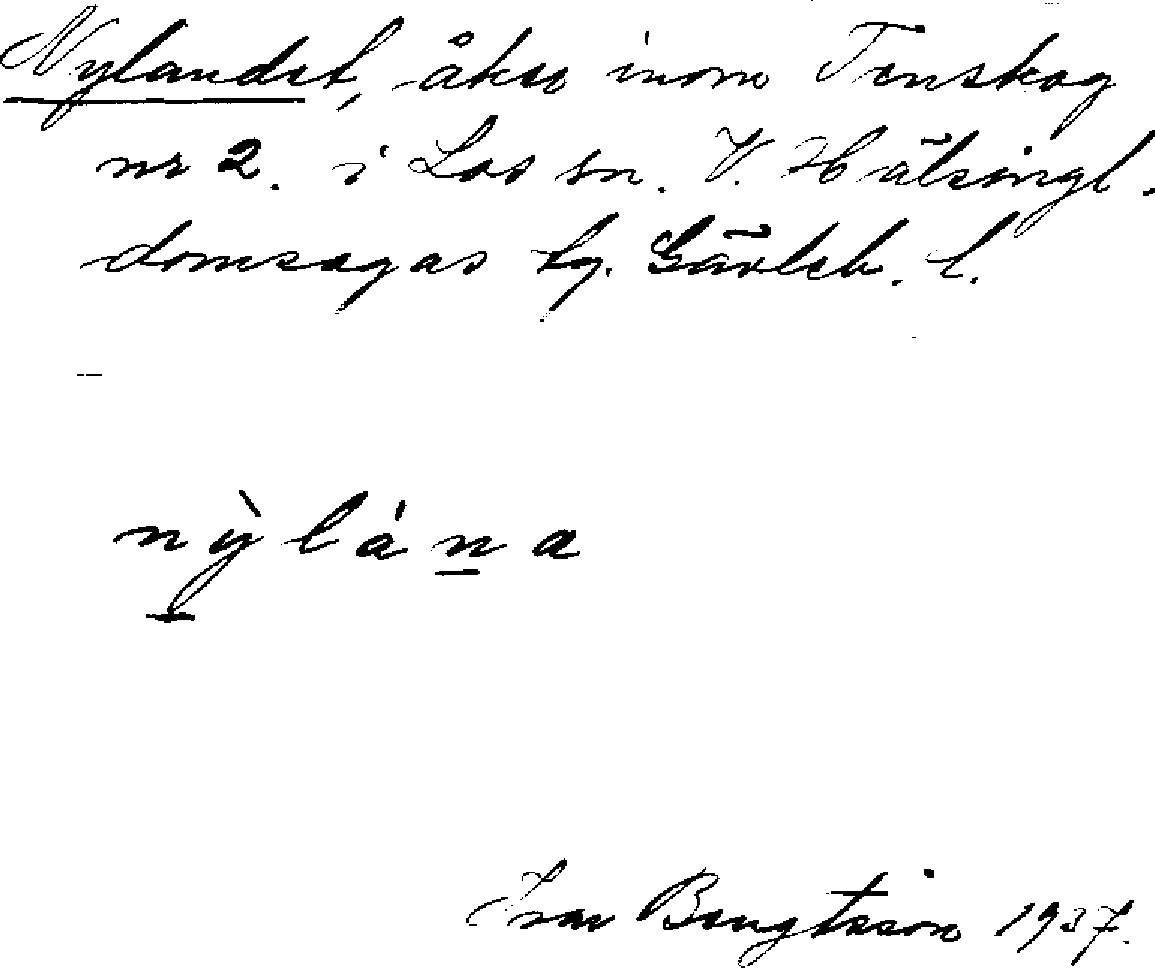 Nylandet, åker inom Tenskog
nr 2. i Los sn. V. Hälsingl.
domsagas tg. Gävleb. l.
nỳlána
Ivar Bengtsson 1937.